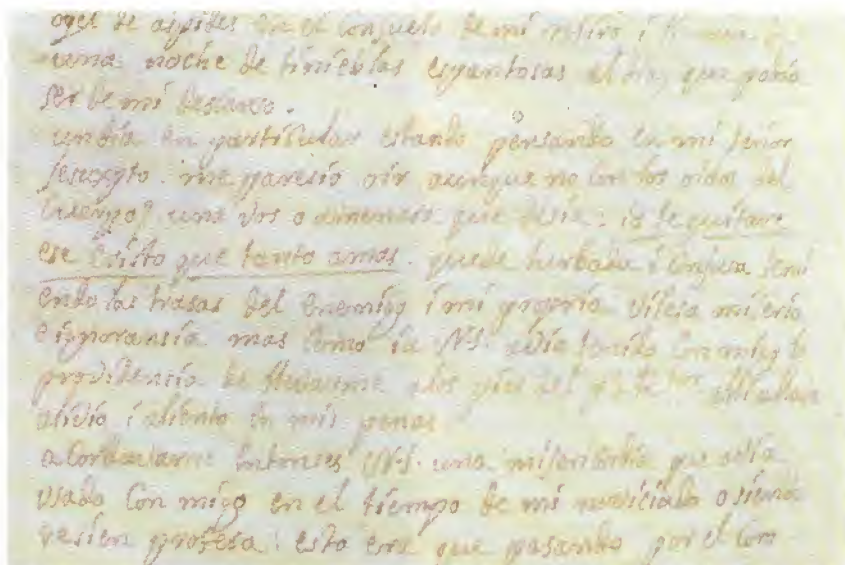 de aspides en el Consuelo de mi retiro i
una noche de tinieblas espantosas el dia que podia
ser de mi descanso.
un dia en particular estando pensando en mi señor
Jesuxpto. me paresio oir aunque no con los oidos del
Cuerpo una vos o amenasa que desia: io te quitare
ese Cristo que tanto amas. quede turbada i Confusa temi
endo las trasas del enemigo i mi propria vilesa miseria
e ignoransia mas Como ia N.S. avia tenido Con migo la
providensia de a los pies del
alivio i aliento en mis penas
acordavame entonses N.S. una misericordia que avia
usado Con migo en el tiempo de mi noviciado o siendo
resien profesa: esto era que pasando por el Com